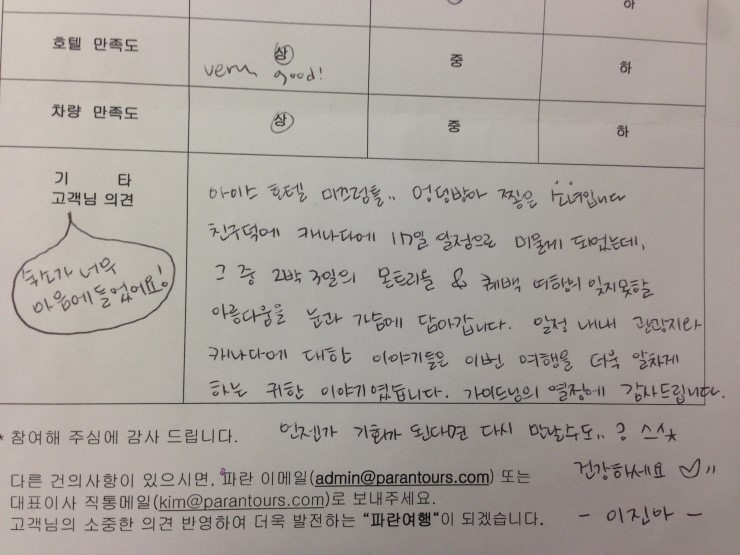 하
호텔 만족도 상 중 하
very good!
차량 만족도 상 중 하
기 타
고객님 의견
숙소가 너무
마음에 들었어요!
아이스 호텔 미끄럼틀.. 엉덩방아 찧은 소녀입니다
친구덕에 캐나다에 17일 일정으로 머물게 되었는데,
그 중 2박 3일의 몬트리올 & 퀘백 여행의 잊지못할
아름다움을 눈과 가슴에 담아갑니다. 일정 내내 관광지와
캐나다에 대한 이야기들은 이번 여행을 더욱 알차게
하는 귀한 이야기였습니다. 가이드님의 열정에 감사드립니다.
* 참여해 주심에 감사 드립니다. 언젠가 기회가 된다면 다시 만날수도..?
다른 건의사항이 있으시면, 파란 이메일(admin@parantours.com) 또는 건강하세요
대표이사 직통메일(kim@parantours.com)로 보내주세요.
고객님의 소중한 의견 반영하여 더욱 발전하는 "파란여행"이 되겠습니다. - 이진아 -